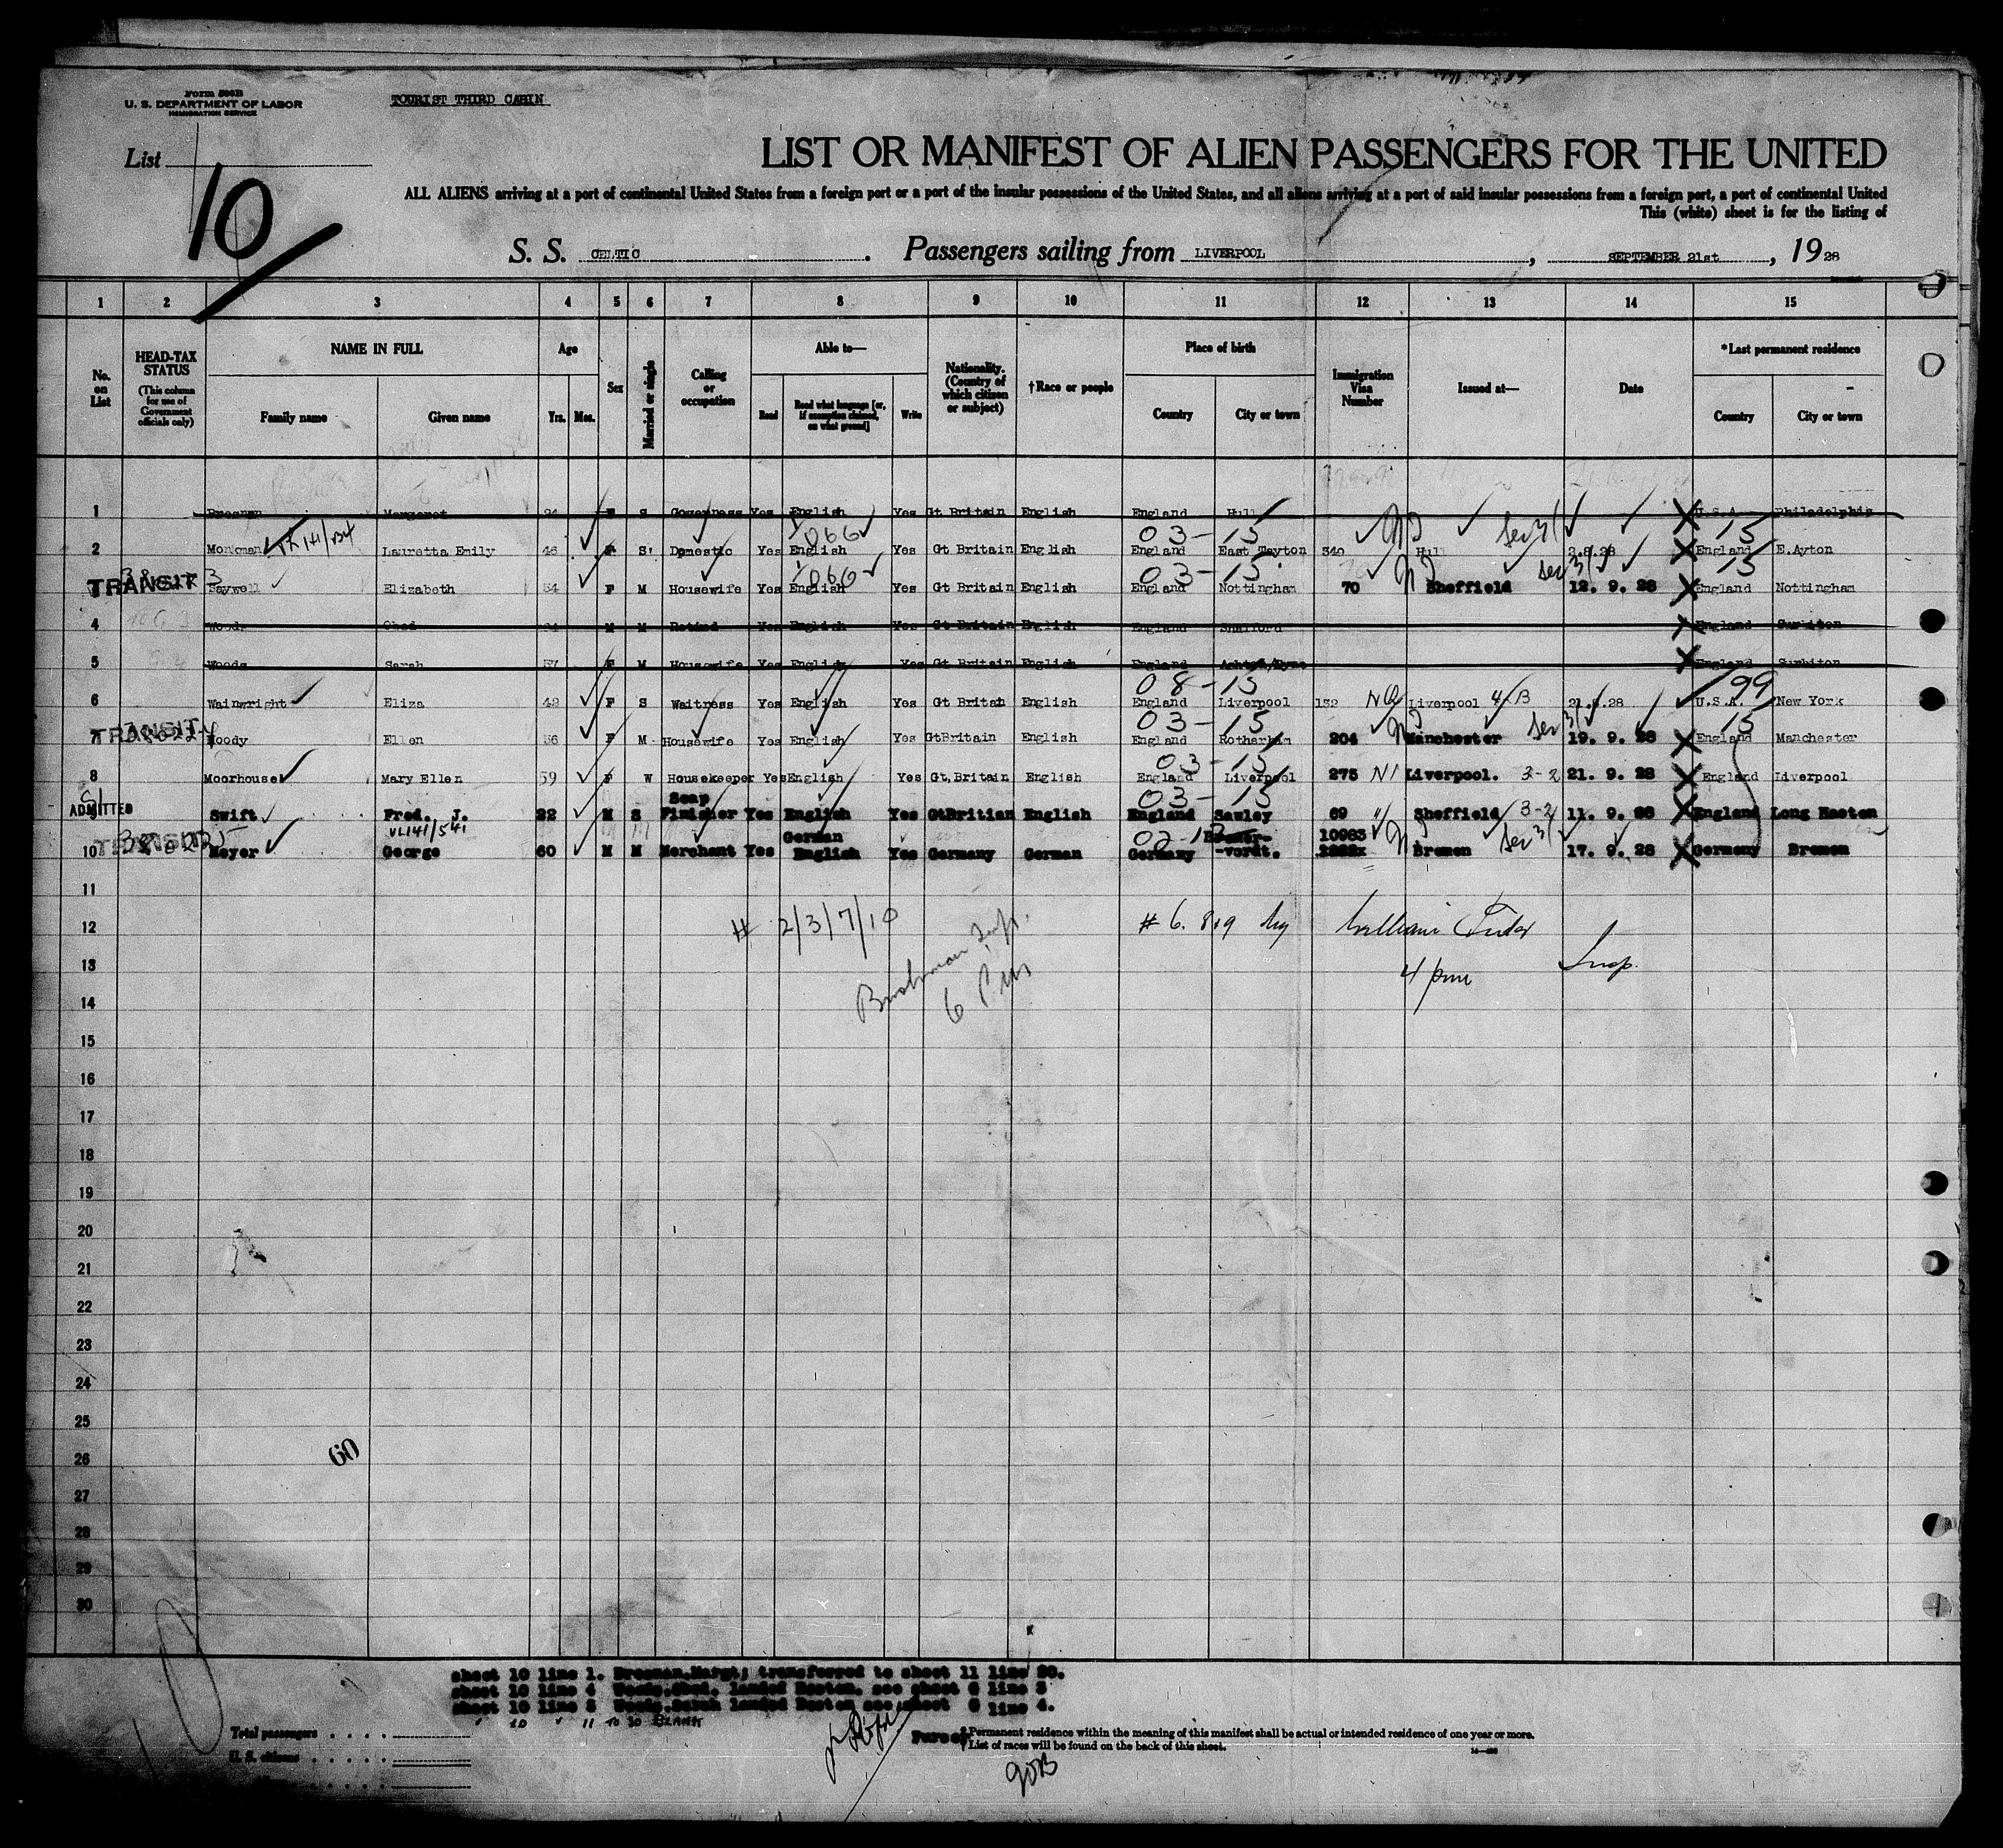 Form 500B
U. S. DEPARTMENT OF LABOR
IMMIGRATION SERVICE
TOURIST THIRD CABIN
List
10
LIST OR MANIFEST OF ALIEN PASSENGERS FOR THE UNITED
ALL ALIENS arriving at a port of continental United States from a foreign port or a port of the insular possessions of the United States, and all aliens arriving at a port of said insular possessions from a foreign port, a port of continental United
This (white) sheet is for the listing of
S. S. CELTIC . Passengers sailing from LIVERPOOL , SEPTEMBER 21st , 19 28
1 2 3 4 5 6 7 8 9 10 11 12 13 14 15
No. on List
HEAD-TAX STATUS (This column for use of Government officials only)
NAME IN FULL
Family name Given name
Age
Yrs. Mos.
Sex
Married or single
Calling or occupation
Able to—
Read Read what language [or, if exemption claimed, on what ground] Write
Nationality. (Country of which citizen or subject)
†Race or people
Place of birth
Country City or town
Immigration Visa Number
Issued at—
Date
*Last permanent residence
Country City or town
1 Bresnan Margaret 24 F S Governess Yes English Yes Gt Britain English England Hull U.S.A. Philadelphia
1066 03-15 Sev 3/ 15
2 Monkman Lauretta Emily 46 F S Domestic Yes English Yes Gt Britain English England East Tayton 340 Hull 2.8.28 England E.Ayton
1060 03-15 Sev 3/ 15
3 TRANSIT Saywell Elizabeth 54 F M Housewife Yes English Yes Gt Britain English England Nottingham 70 Sheffield 12. 9. 28 England Nottingham
4 Woods Obed M M Retired Yes English Yes Gt Britain English England Shalford England Surbiton
5 Woods Sarah 57 F M Housewife Yes English Yes Gt Britain English England Ashton/Lyne England Surbiton
08-15 99
6 Wainwright Eliza 42 F S Waitress Yes English Yes Gt Britain English England Liverpool 132 NQ Liverpool 4/B 21.8.28 U.S.A. New York
03-15 Sev 3/ 15
7 TRANSIT Moody Ellen 56 F M Housewife Yes English Yes GtBritain English England Rotherham 204 Manchester 19. 9. 28 England Manchester
03-15
8 Moorhouse Mary Ellen 59 F W Housekeeper Yes English Yes Gt,Britain English England Liverpool 275 Liverpool. 3-2 21. 9. 28 England Liverpool
Soap 03-15
9 ADMITTED Swift Fred. J. 22 M S Finisher Yes English Yes GtBritian English England Sawley 69 " Sheffield 3-2 11. 9. 28 England Long Eaton
German 10983 Sev 3/
10 TRANSIT Meyer George 60 M M Merchant Yes English Yes Germany German Germany -vordt. Bremen 17. 9. 28 Germany Bremen
11
12 # 2/3/7/10 # 6. 8+9 by William
13 Insp. 4 pm Insp.
14 6 PM
15
16
17
18
19
20
21
22
23
24
25
26 60
27
28
29
30
sheet 10 line 1. Bresnan.Margt; transferred to sheet 11 line 30.
sheet 10 line 4 Woods.Obed. landed Boston, see sheet 6 line 3
sheet 10 line 5 Woods.Sarah landed Boston see sheet 6 line 4.
" 10 " 11 TO 30 BLANK
Total passengers
U. S. citizens
Purser
*Permanent residence within the meaning of this manifest shall be actual or intended residence of one year or more.
†List of races will be found on the back of this sheet.